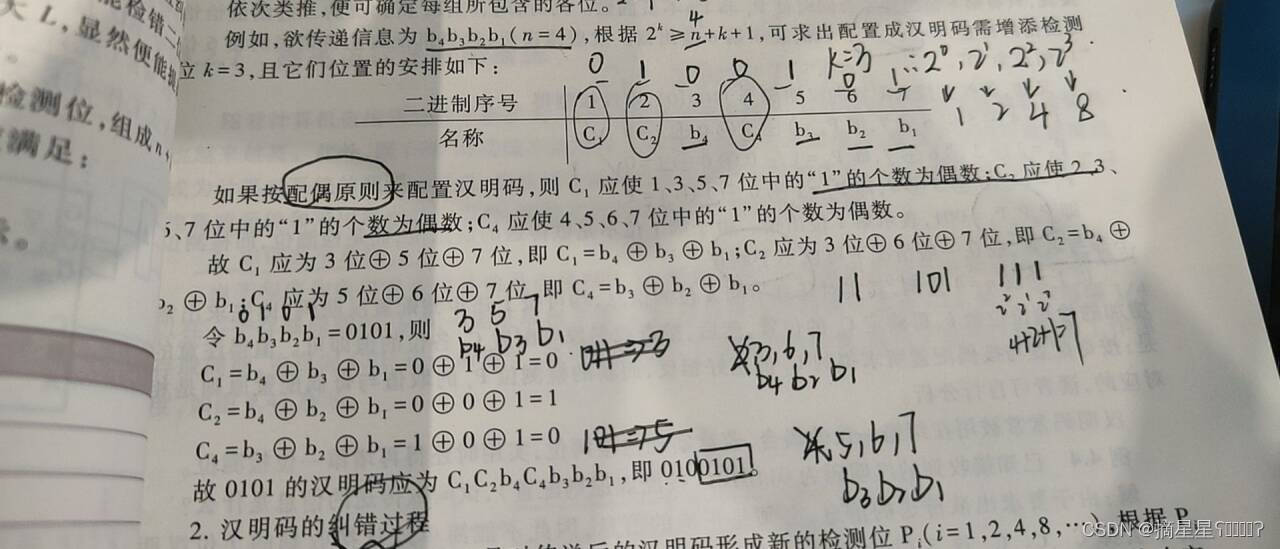 依次类推,便可确定每组所包含的各位。
例如,欲传递信息为 b₄b₃b₂b₁(n=4),根据 2ᵏ ≥ n+k+1,可求出配置成汉明码需增添检测
4
位 k=3,且它们位置的安排如下:
0 1 0 0 1 0 1
k=3 ∴ 2⁰, 2¹, 2², 2³
二进制序号 1 2 3 4 5 6 7
1 2 4 8
名称 C₁ C₂ b₄ C₄ b₃ b₂ b₁
能检错二
大 L,显然便能
检测位,组成 n+
满足:
如果按配偶原则来配置汉明码,则 C₁ 应使 1、3、5、7 位中的“1”的个数为偶数;C₂ 应使 2、3、
6、7 位中的“1”的个数为偶数;C₄ 应使 4、5、6、7 位中的“1”的个数为偶数。
故 C₁ 应为 3 位⊕ 5 位⊕ 7 位,即 C₁=b₄ ⊕ b₃ ⊕ b₁;C₂ 应为 3 位⊕ 6 位⊕ 7 位,即 C₂=b₄ ⊕
b₂ ⊕ b₁;C₄ 应为 5 位⊕ 6 位⊕ 7 位,即 C₄=b₃ ⊕ b₂ ⊕ b₁。
11 101 111
2² 2¹ 2⁰
4+2+1=7
0 1 0 1
令 b₄b₃b₂b₁=0101,则
3 5 7
b₄ b₃ b₁
C₁=b₄ ⊕ b₃ ⊕ b₁=0 ⊕ 1 ⊕ 1=0
3,6,7
b₄ b₂ b₁
C₂=b₄ ⊕ b₂ ⊕ b₁=0 ⊕ 0 ⊕ 1=1
C₄=b₃ ⊕ b₂ ⊕ b₁=1 ⊕ 0 ⊕ 1=0
5,6,7
b₃ b₂ b₁
故 0101 的汉明码应为 C₁C₂b₄C₄b₃b₂b₁,即 0100101。
2. 汉明码的纠错过程
后的汉明码形成新的检测位 Pᵢ(i=1,2,4,8,⋯),根据 P
CSDN @摘星星